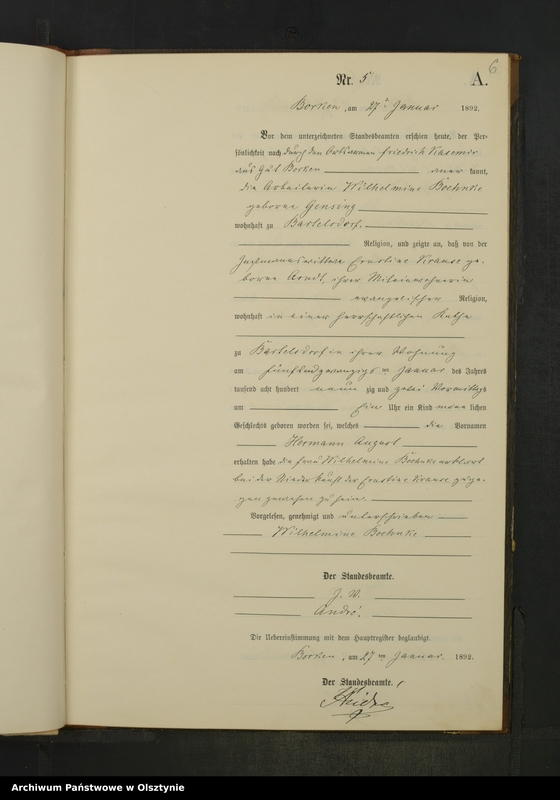 6
Nr. 5 A.
Borken, am 27ten Januar 1892.
Vor dem unterzeichneten Standesbeamten erschien heute, der Per-
sönlichkeit nach durch den Friedrich Kasemir
aus Gut Borken kannt,
die Arbeiterin Wilhelmine Boehnke
geborne Gensing
wohnhaft zu Bartelsdorf.
Religion, und zeigte an, daß von der
Ernstine Krause ge-
borne Arndt, ihrer Miteinwohnerin
evangelischer Religion,
wohnhaft in einer herrschaftlichen Kathe
zu Bartelsdorf in ihrer Wohnung
am fünfundzwanzigsten Januar des Jahres
tausend acht hundert neun zig und zwei Vormittags
um Ein Uhr ein Kind männ lichen
Geschlechts geboren worden sei, welches die Vornamen
Hermann August
erhalten habe die Frau Wilhelmine Boehnke
bei der Niederkunft der Ernstine Krause zuge-
gen gewesen zu sein.
Vorgelesen, genehmigt und unterschrieben
Wilhelmine Boehnke
Der Standesbeamte.
J. V.
André.
Die Uebereinstimmung mit dem Hauptregister beglaubigt.
Borken, am 27ten Januar. 1892.
Der Standesbeamte.
Archiwum Państwowe w Olsztynie